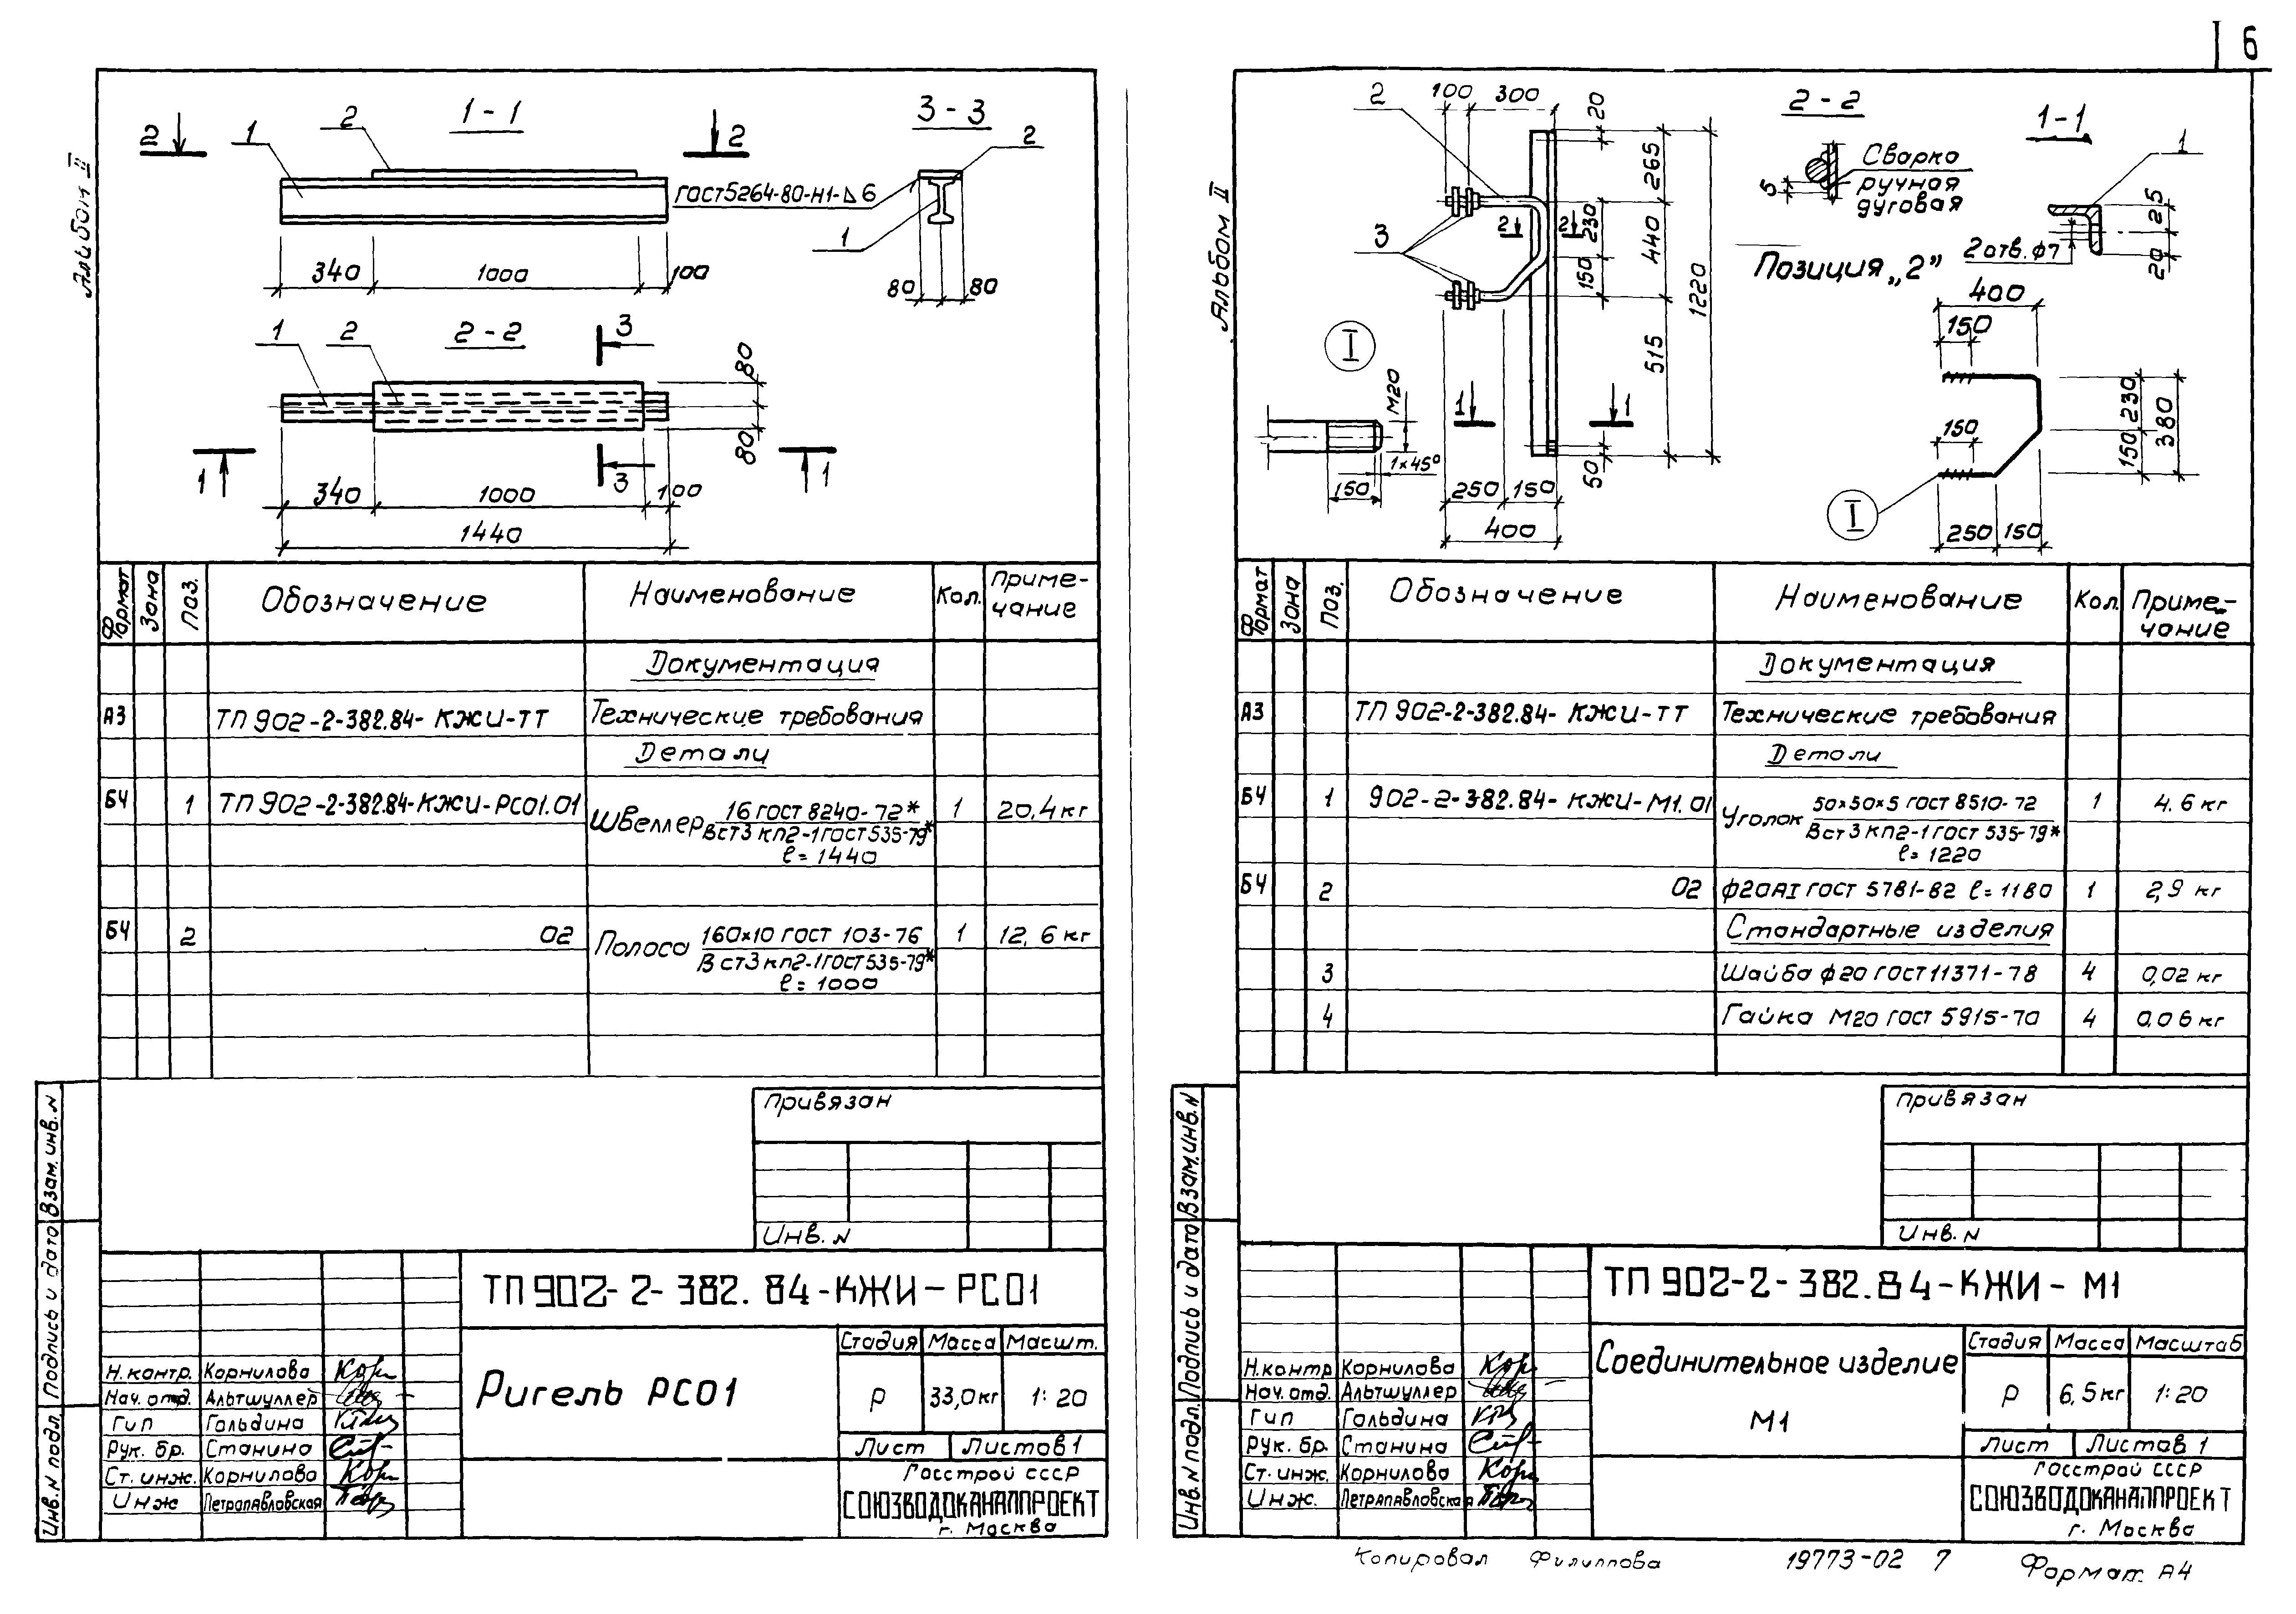 6
Альбом II
1-1
3-3
2
2
1
2
2
ГОСТ5264-80-Н1-△6
1
340
1000
100
80
80
2-2
1
2
3
80
80
3
1
1
340
1000
100
1440
Формат
Зона
Поз.
Обозначение
Наименование
Кол.
Приме-
чание
Документация
А3
ТП 902-2-382.84-КЖИ-ТТ
Технические требования
Детали
БЧ
1
ТП 902-2-382.84-КЖИ-РС01.01
Швеллер
16 ГОСТ 8240-72*
Вст3 кп2-1 ГОСТ 535-79*
ℓ=1440
1
20,4 кг
БЧ
2
02
Полоса
160×10 ГОСТ 103-76
Вст3 кп2-1 ГОСТ 535-79*
ℓ=1000
1
12,6 кг
Привязан
Инв. N
Взам. инв. N
Подпись и дата
Инв. N подл.
ТП 902-2-382.84-КЖИ-РС01
Н.контр. Корнилова
Нач. отд. Альтшуллер
Гип Гольдина
Рук. бр. Станина
Ст. инж. Корнилова
Инж Петрапавловская
Ригель РС01
Стадия
Масса
Масшт.
Р
33,0кг
1:20
Лист
Листов 1
Госстрой СССР
СОЮЗВОДОКАНАЛПРОЕКТ
г. Москва
Альбом II
2
100
300
20
3
2
2
265
230
440
150
1220
515
I
М20
1×45°
150
1
1
50
250
150
400
2-2
Сварка
ручная
дуговая
5
1-1
1
25
20
2 отв. ф7
Позиция „2”
400
150
230
380
150
150
I
250
150
Формат
Зона
Поз.
Обозначение
Наименование
Кол.
Приме-
чание
Документация
А3
ТП 902-2-382.84-КЖИ-ТТ
Технические требования
Детали
БЧ
1
902-2-382.84-КЖИ-М1.01
Уголок
50×50×5 ГОСТ 8510-72
Вст3 кп2-1 ГОСТ 535-79*
ℓ=1220
1
4,6 кг
БЧ
2
02
ф20АI ГОСТ 5781-82 ℓ=1180
1
2,9 кг
Стандартные изделия
3
Шайба ф20 ГОСТ 11371-78
4
0,02 кг
4
Гайка М20 ГОСТ 5915-70
4
0,06 кг
Привязан
Инв. N
Взам. инв. N
Подпись и дата
Инв. N подл.
ТП 902-2-382.84-КЖИ-М1
Н.контр Корнилова
Нач. отд. Альтшуллер
Гип Гольдина
Рук. бр. Станина
Ст. инж. Корнилова
Инж. Петрапавловская
Соединительное изделие
М1
Стадия
Масса
Масштаб
Р
6,5кг
1:20
Лист
Листов 1
Госстрой СССР
СОЮЗВОДОКАНАЛПРОЕКТ
г. Москва
Копировал Филиппова 19773-02 7 Формат А4